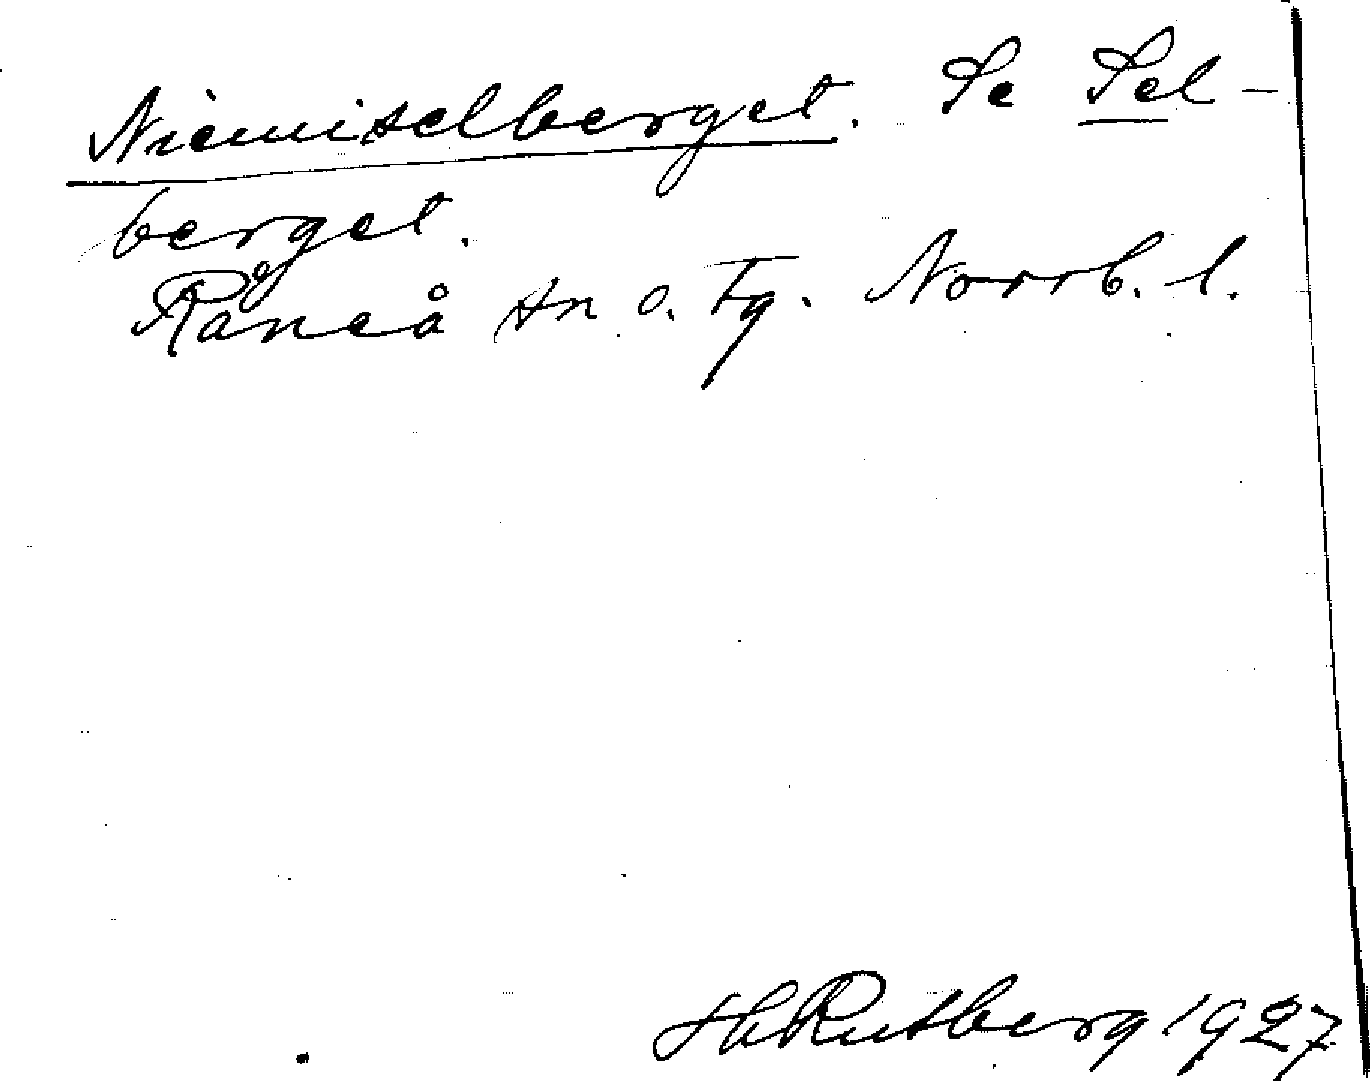 Niemiselberget. Se Sel-
berget.
Råneå sn o. Tg. Norrb. l.
Hb Rutberg 1927